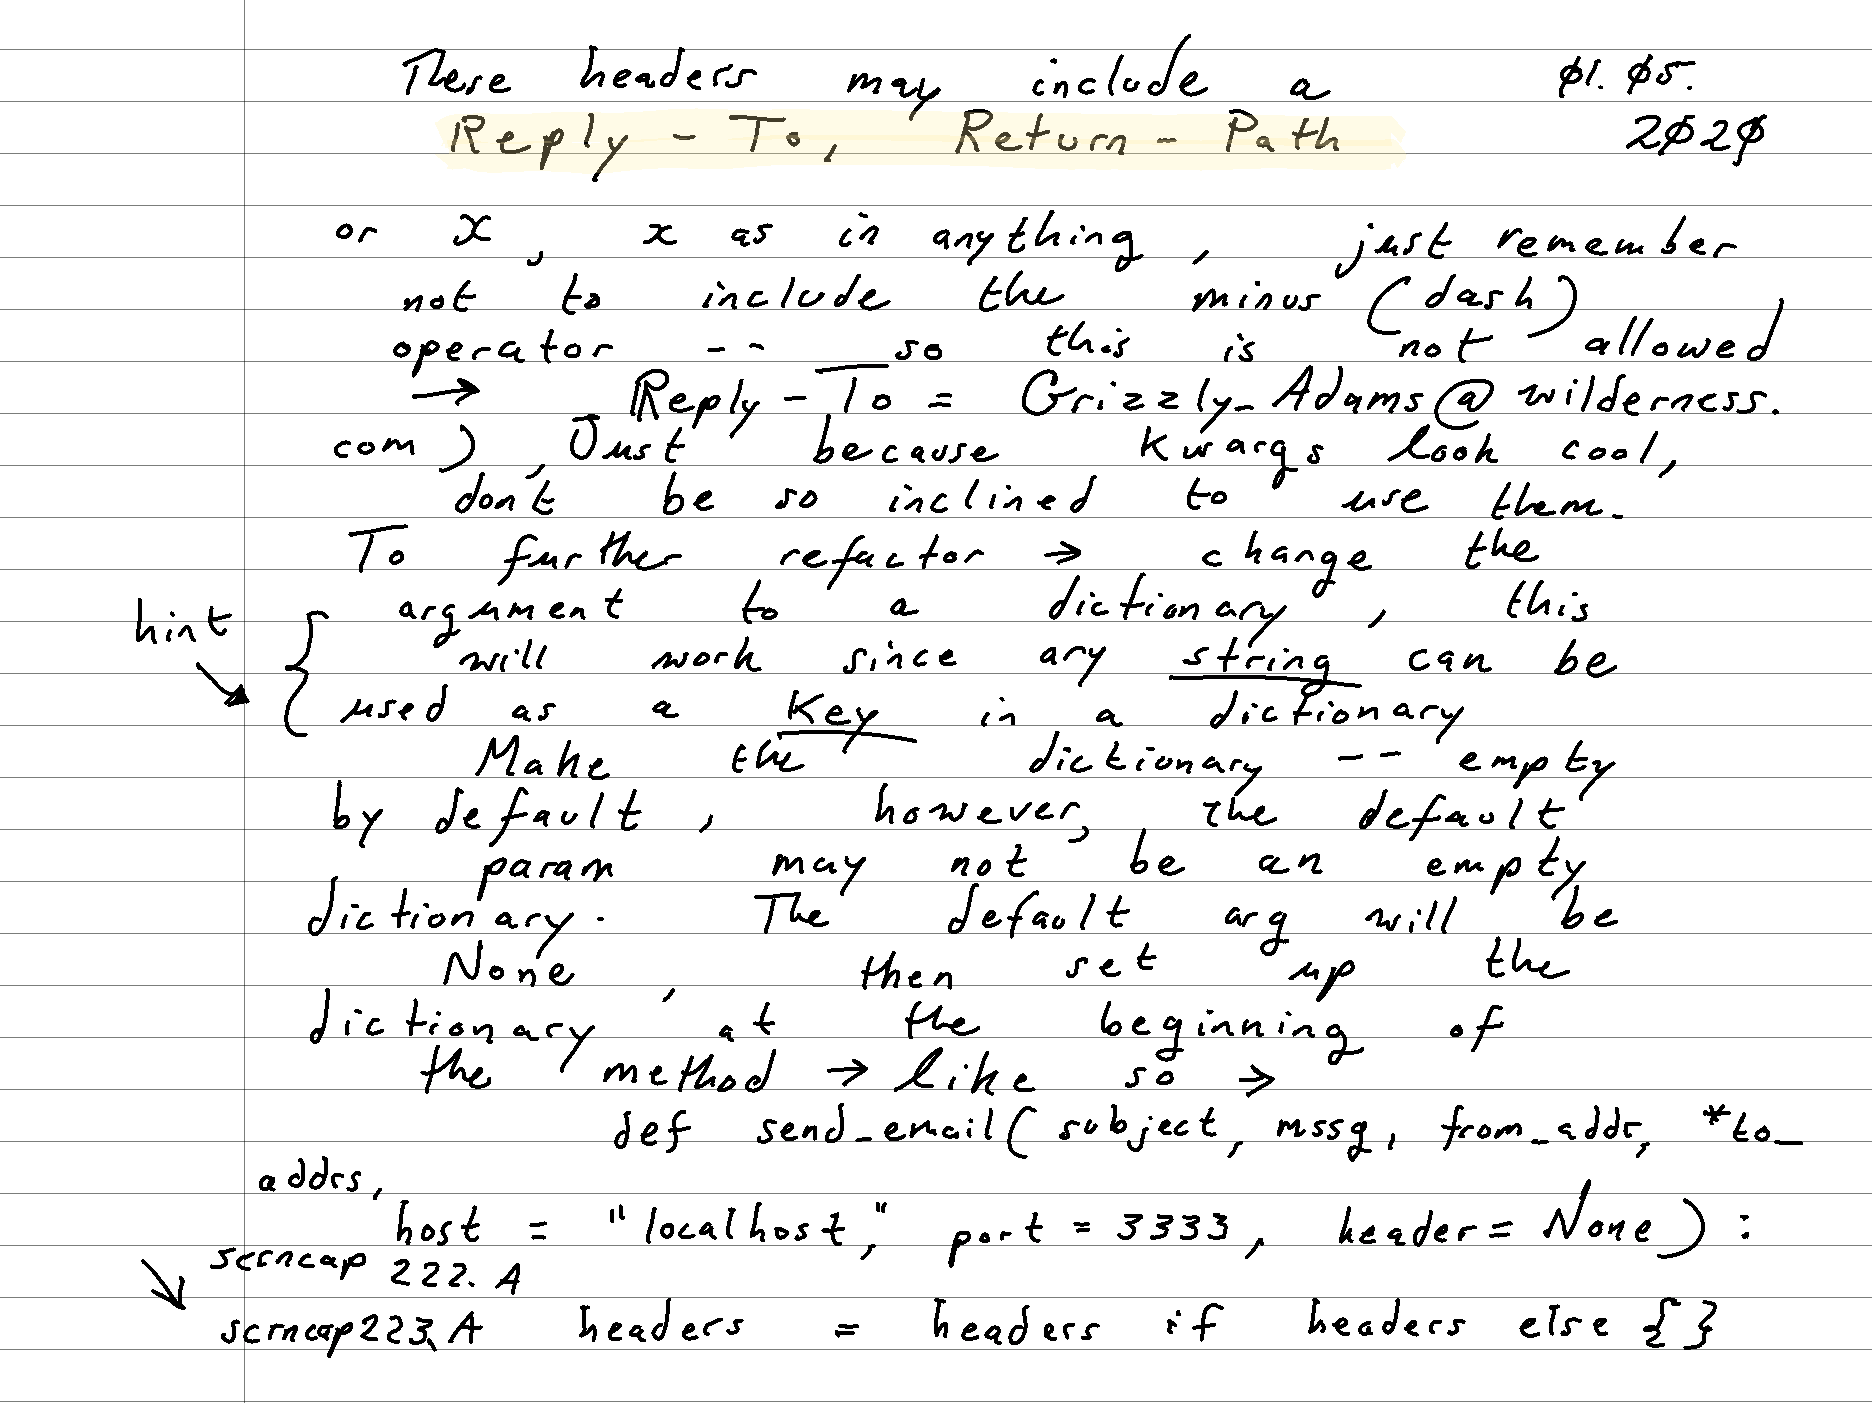 These headers may include a ø1. ø5.
Reply - To, Return - Path 2ø2ø
or X, x as in anything, just remember
not to include the minus (dash)
operator -- so this is not allowed
→ Reply - To = Grizzly_Adams@wilderness.
com), Just because Kwargs look cool,
don't be so inclined to use them.
To further refactor → change the
argument to a dictionary, this
hint
will work since any string can be
used as a Key in a dictionary
Make the dictionary -- empty
by default, however, the default
param may not be an empty
dictionary. The default arg will be
None, then set up the
dictionary at the beginning of
the method → like so →
def send_email( subject, mssg, from_addr, *to_
addrs,
host = "localhost," port = 3333, header = None ) :
scrncap 222. A
scrncap 223. A headers = headers if headers else { }